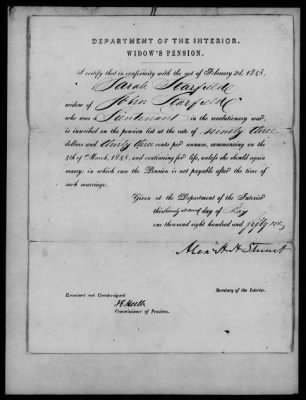 DEPARTMENT OF THE INTERIOR.
WIDOW'S PENSION.
I certify that in conformity with the act of February 2d, 1848,
Sarah
widow of John
who was a Lieutenant in the revolutionary war
is inscribed on the pension list at the rate of ninety three
dollars and thirty three cents per annum, commencing on the
4th of March, 1848, and continuing for life, unless she should again
marry, in which case the Pension is not payable after the time of
such marriage.
Given at the Department of the Interior
this day of
one thousand eight hundred and fifty one
Alex H. H. Stuart
Secretary of the Interior.
Examined and Countersigned
J. E. Heath
Commissioner of Pensions.